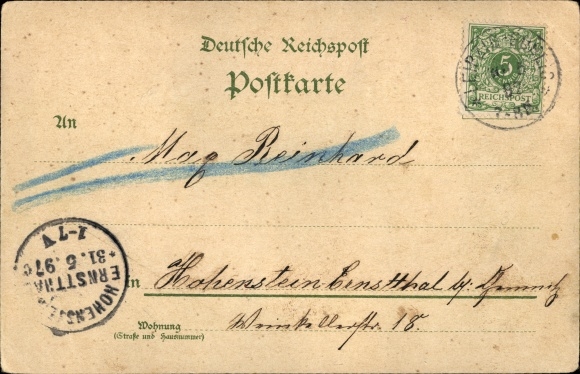 Deutsche Reichspost
Postkarte
5
REICHSPOST
An
Max Reinhard
HOHENST
ERNSTTHAL
*31.5.97*
1-7 V
in Hohenstein Ernstthal b/ Chemnitz
Weinkellerstr. 18.
Wohnung
(Straße und Hausnummer)